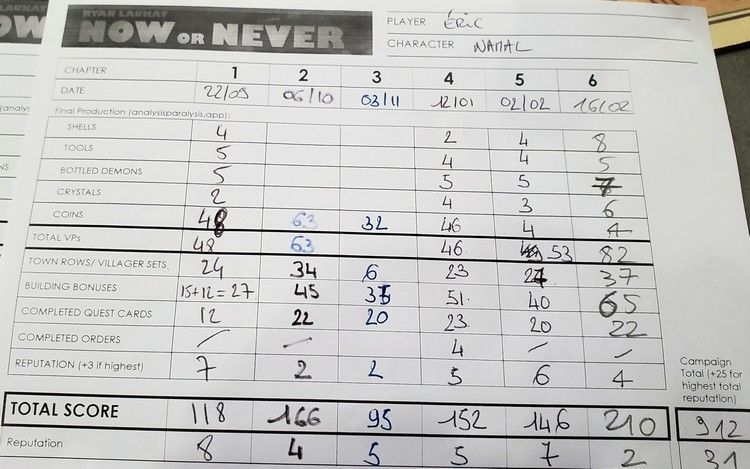 RYAN LAUKAT
NOW OR NEVER
PLAYER ÉRIC
CHARACTER NAMAL
CHAPTER 1 2 3 4 5 6
DATE 22/09 06/10 03/11 12/01 02/02 16/02
Final Production (analysisparalysis.app):
SHELLS 4 2 4 8
TOOLS 5 4 4 5
BOTTLED DEMONS 5 5 5 7
CRYSTALS 2 4 3 6
COINS 48 63 32 46 4 4
TOTAL VPs 48 63 46 53 82
TOWN ROWS/ VILLAGER SETS 24 34 6 23 27 37
BUILDING BONUSES 15+12=27 45 35 51 40 65
COMPLETED QUEST CARDS 12 22 20 23 20 22
COMPLETED ORDERS / — 4 / /
REPUTATION (+3 if highest) 7 2 2 5 6 4
Campaign
Total (+25 for
highest total
reputation)
TOTAL SCORE 118 166 95 152 146 210 912
Reputation 8 4 5 5 7 2 31